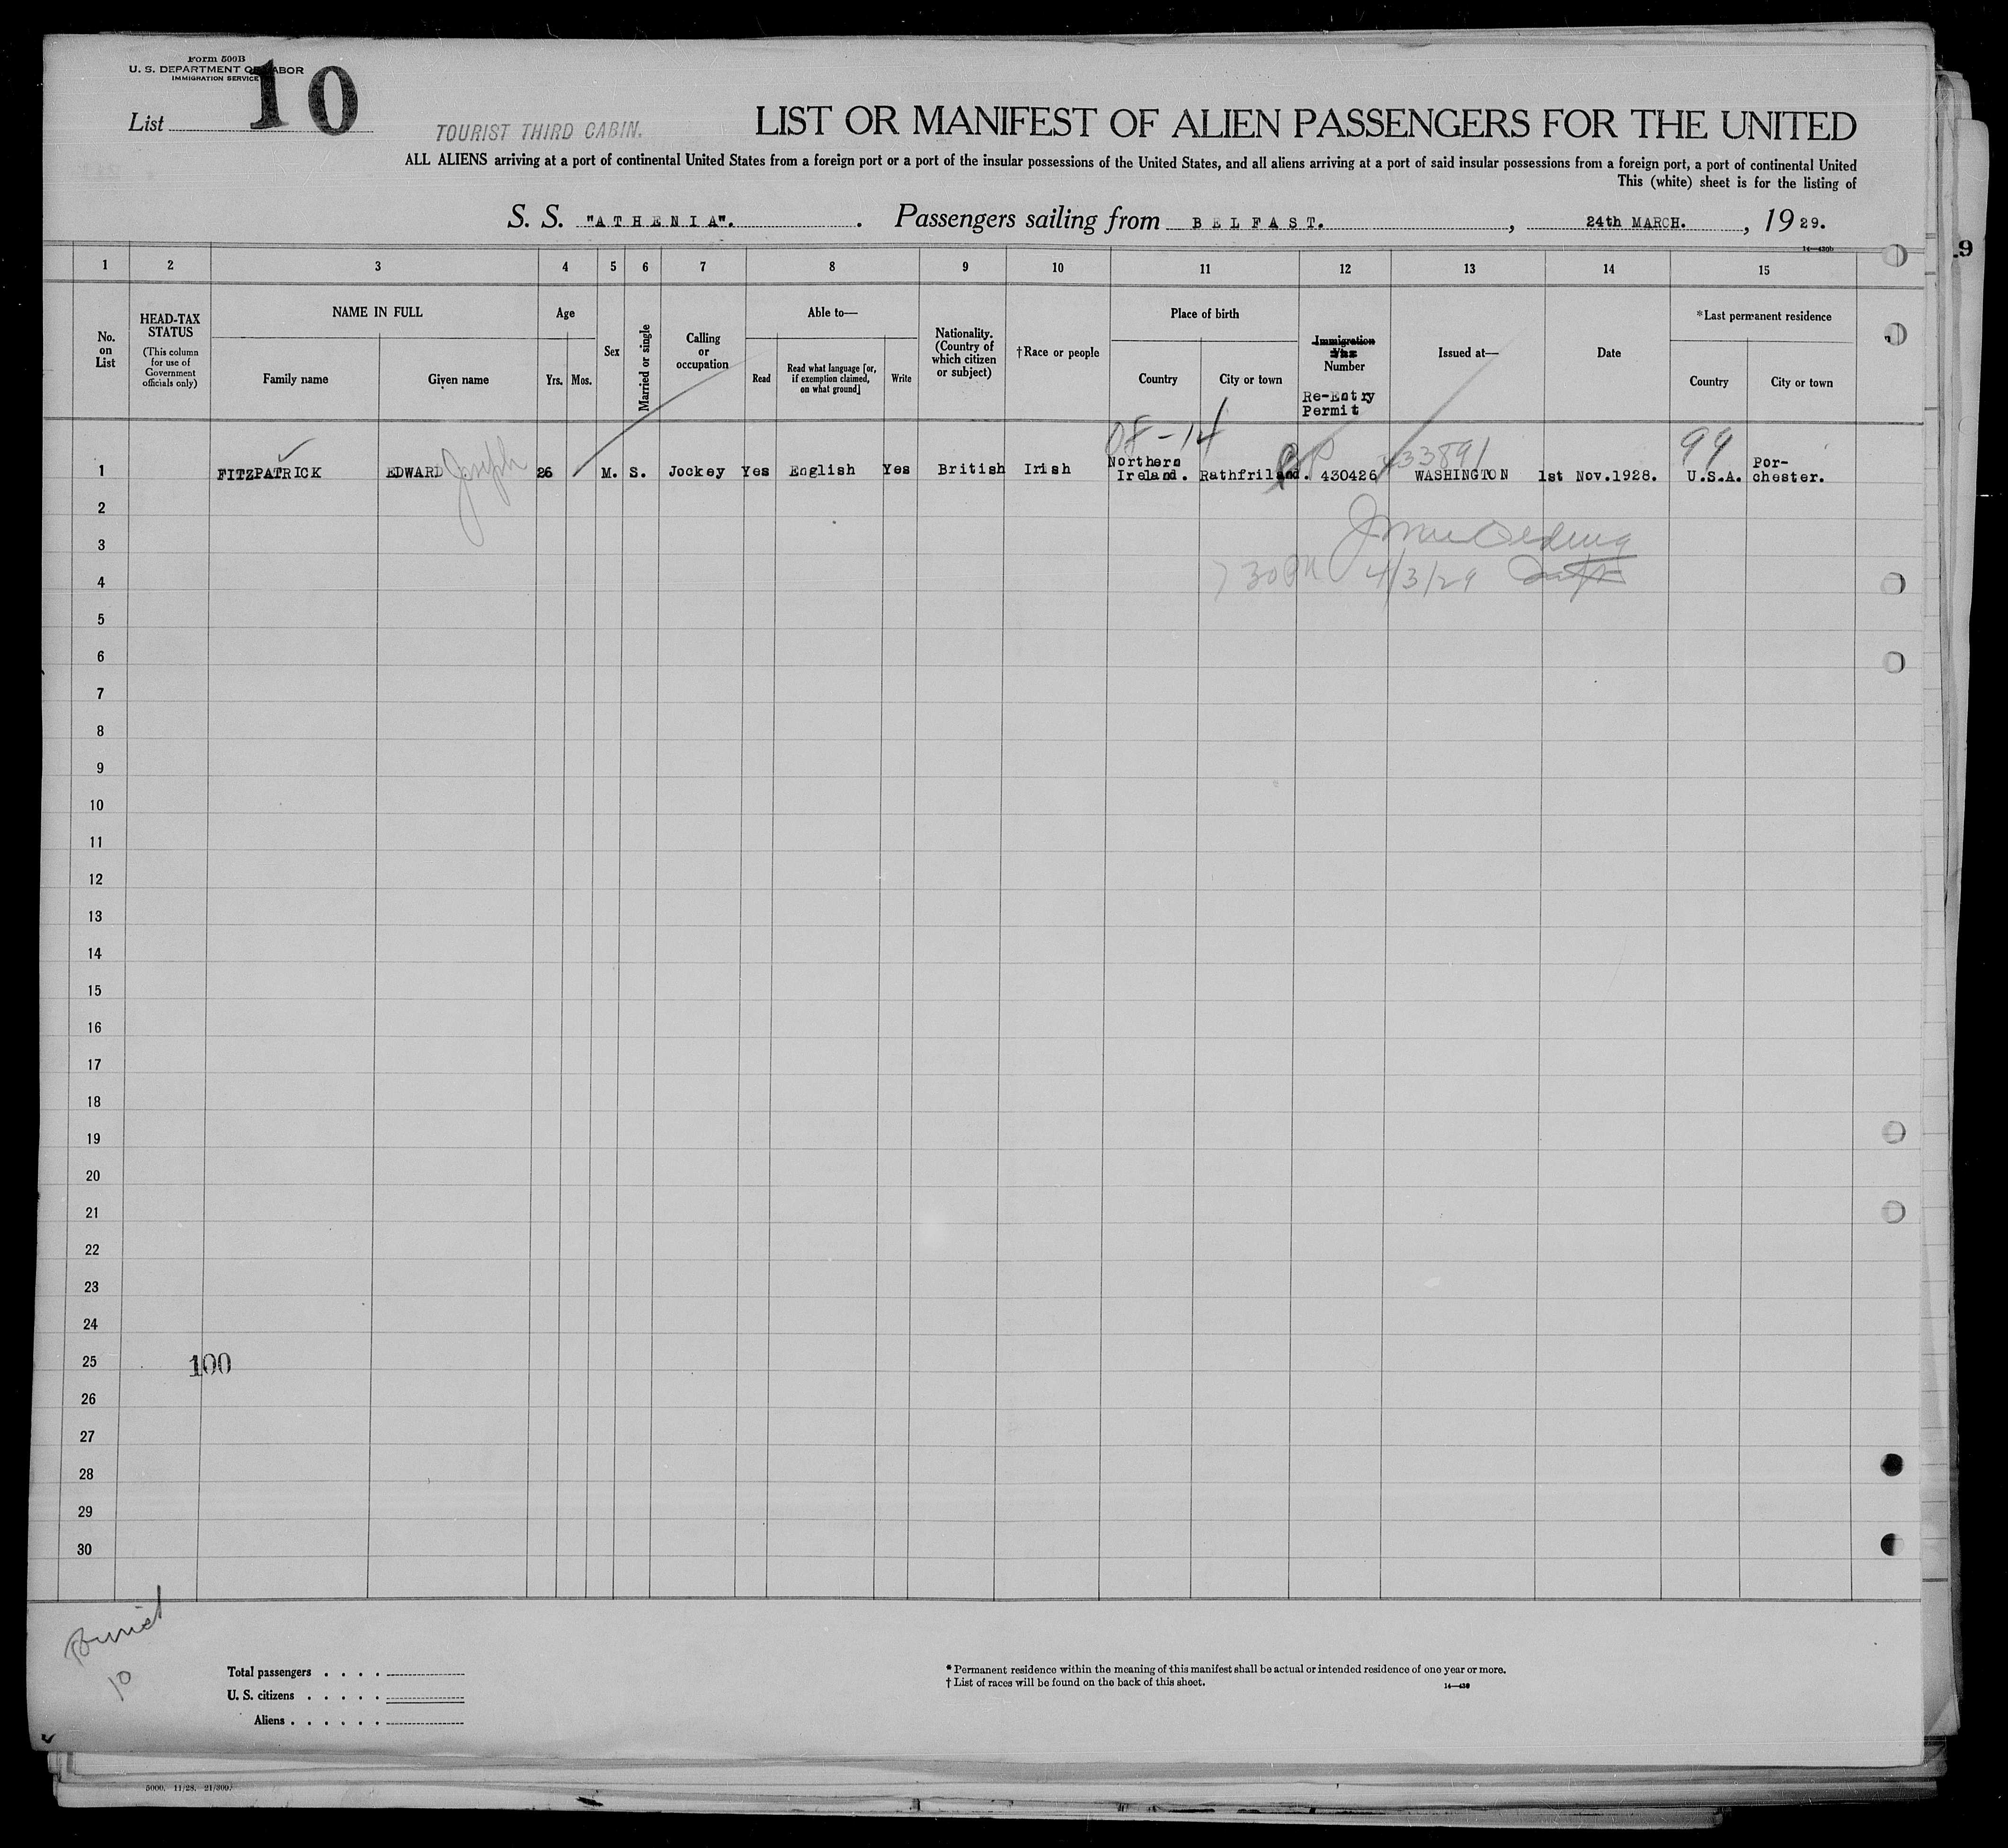 Form 500B
U. S. DEPARTMENT OF LABOR
IMMIGRATION SERVICE
List 10
TOURIST THIRD CABIN.
LIST OR MANIFEST OF ALIEN PASSENGERS FOR THE UNITED
ALL ALIENS arriving at a port of continental United States from a foreign port or a port of the insular possessions of the United States, and all aliens arriving at a port of said insular possessions from a foreign port, a port of continental United
This (white) sheet is for the listing of
S. S. "ATHENIA". Passengers sailing from BELFAST. , 24th MARCH. , 1929.
14—430b
9
1 2 3 4 5 6 7 8 9 10 11 12 13 14 15
No. on List
HEAD-TAX STATUS
(This column for use of Government officials only)
NAME IN FULL
Family name
Given name
Age
Yrs.
Mos.
Sex
Married or single
Calling or occupation
Able to—
Read
Read what language [or, if exemption claimed, on what ground]
Write
Nationality. (Country of which citizen or subject)
†Race or people
Place of birth
Country
City or town
Immigration Visa Number
Re-Entry Permit
Issued at—
Date
*Last permanent residence
Country
City or town
08-14
99
433891
1 FITZPATRICK EDWARD Joseph 26 M. S. Jockey Yes English Yes British Irish Northern Ireland. Rathfriland. RP 430426 WASHINGTON 1st Nov.1928. U.S.A. Por-chester.
2
3
7 30 PM 4/3/29
4
5
6
7
8
9
10
11
12
13
14
15
16
17
18
19
20
21
22
23
24
25
100
26
27
28
29
30
10
Total passengers . . . .
U. S. citizens . . . . .
Aliens . . . . . .
* Permanent residence within the meaning of this manifest shall be actual or intended residence of one year or more.
† List of races will be found on the back of this sheet.
14—430
5000. 11/28. 21/309.